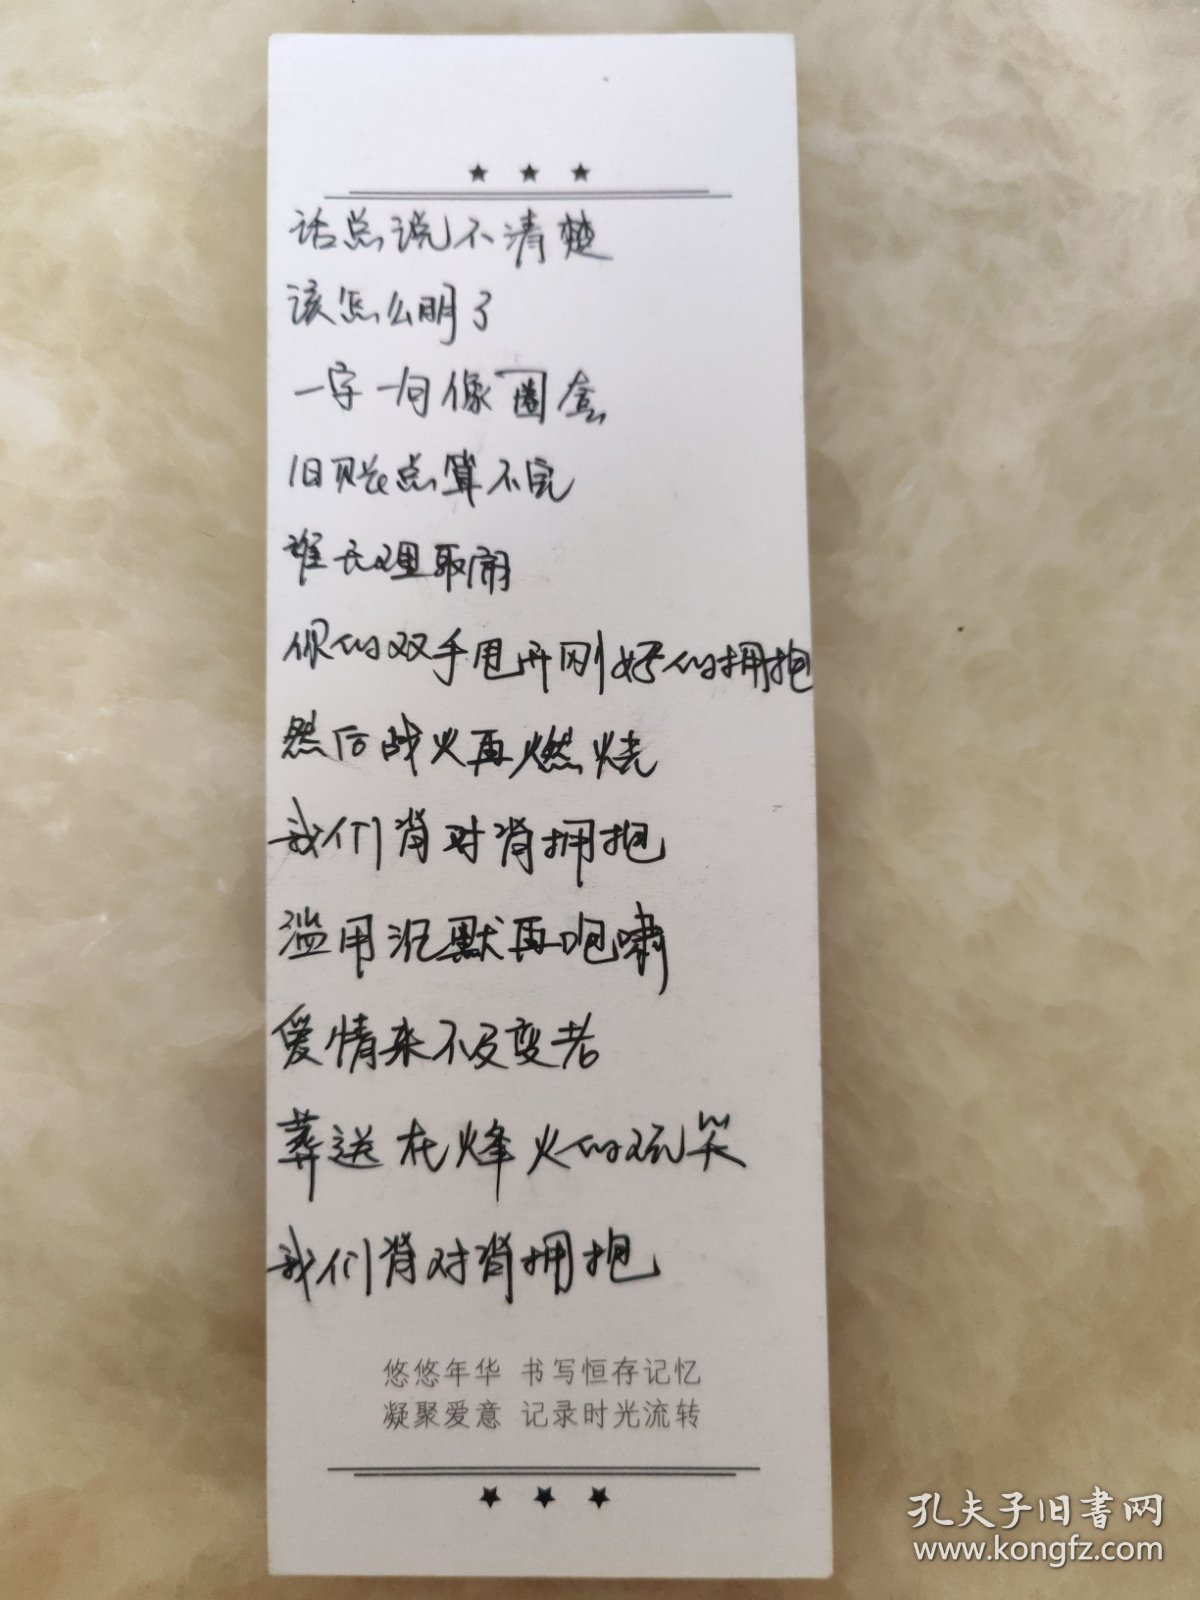 话总说不清楚
该怎么明了
一字一句像圈套
旧账总算不完
谁无理取闹
你的双手甩开刚好的拥抱
然后战火再燃烧
我们背对背拥抱
滥用沉默再咆啸
爱情来不及变老
葬送在烽火的玩笑
我们背对背拥抱
悠悠年华 书写恒存记忆
凝聚爱意 记录时光流转
孔夫子旧书网
www.kongfz.com